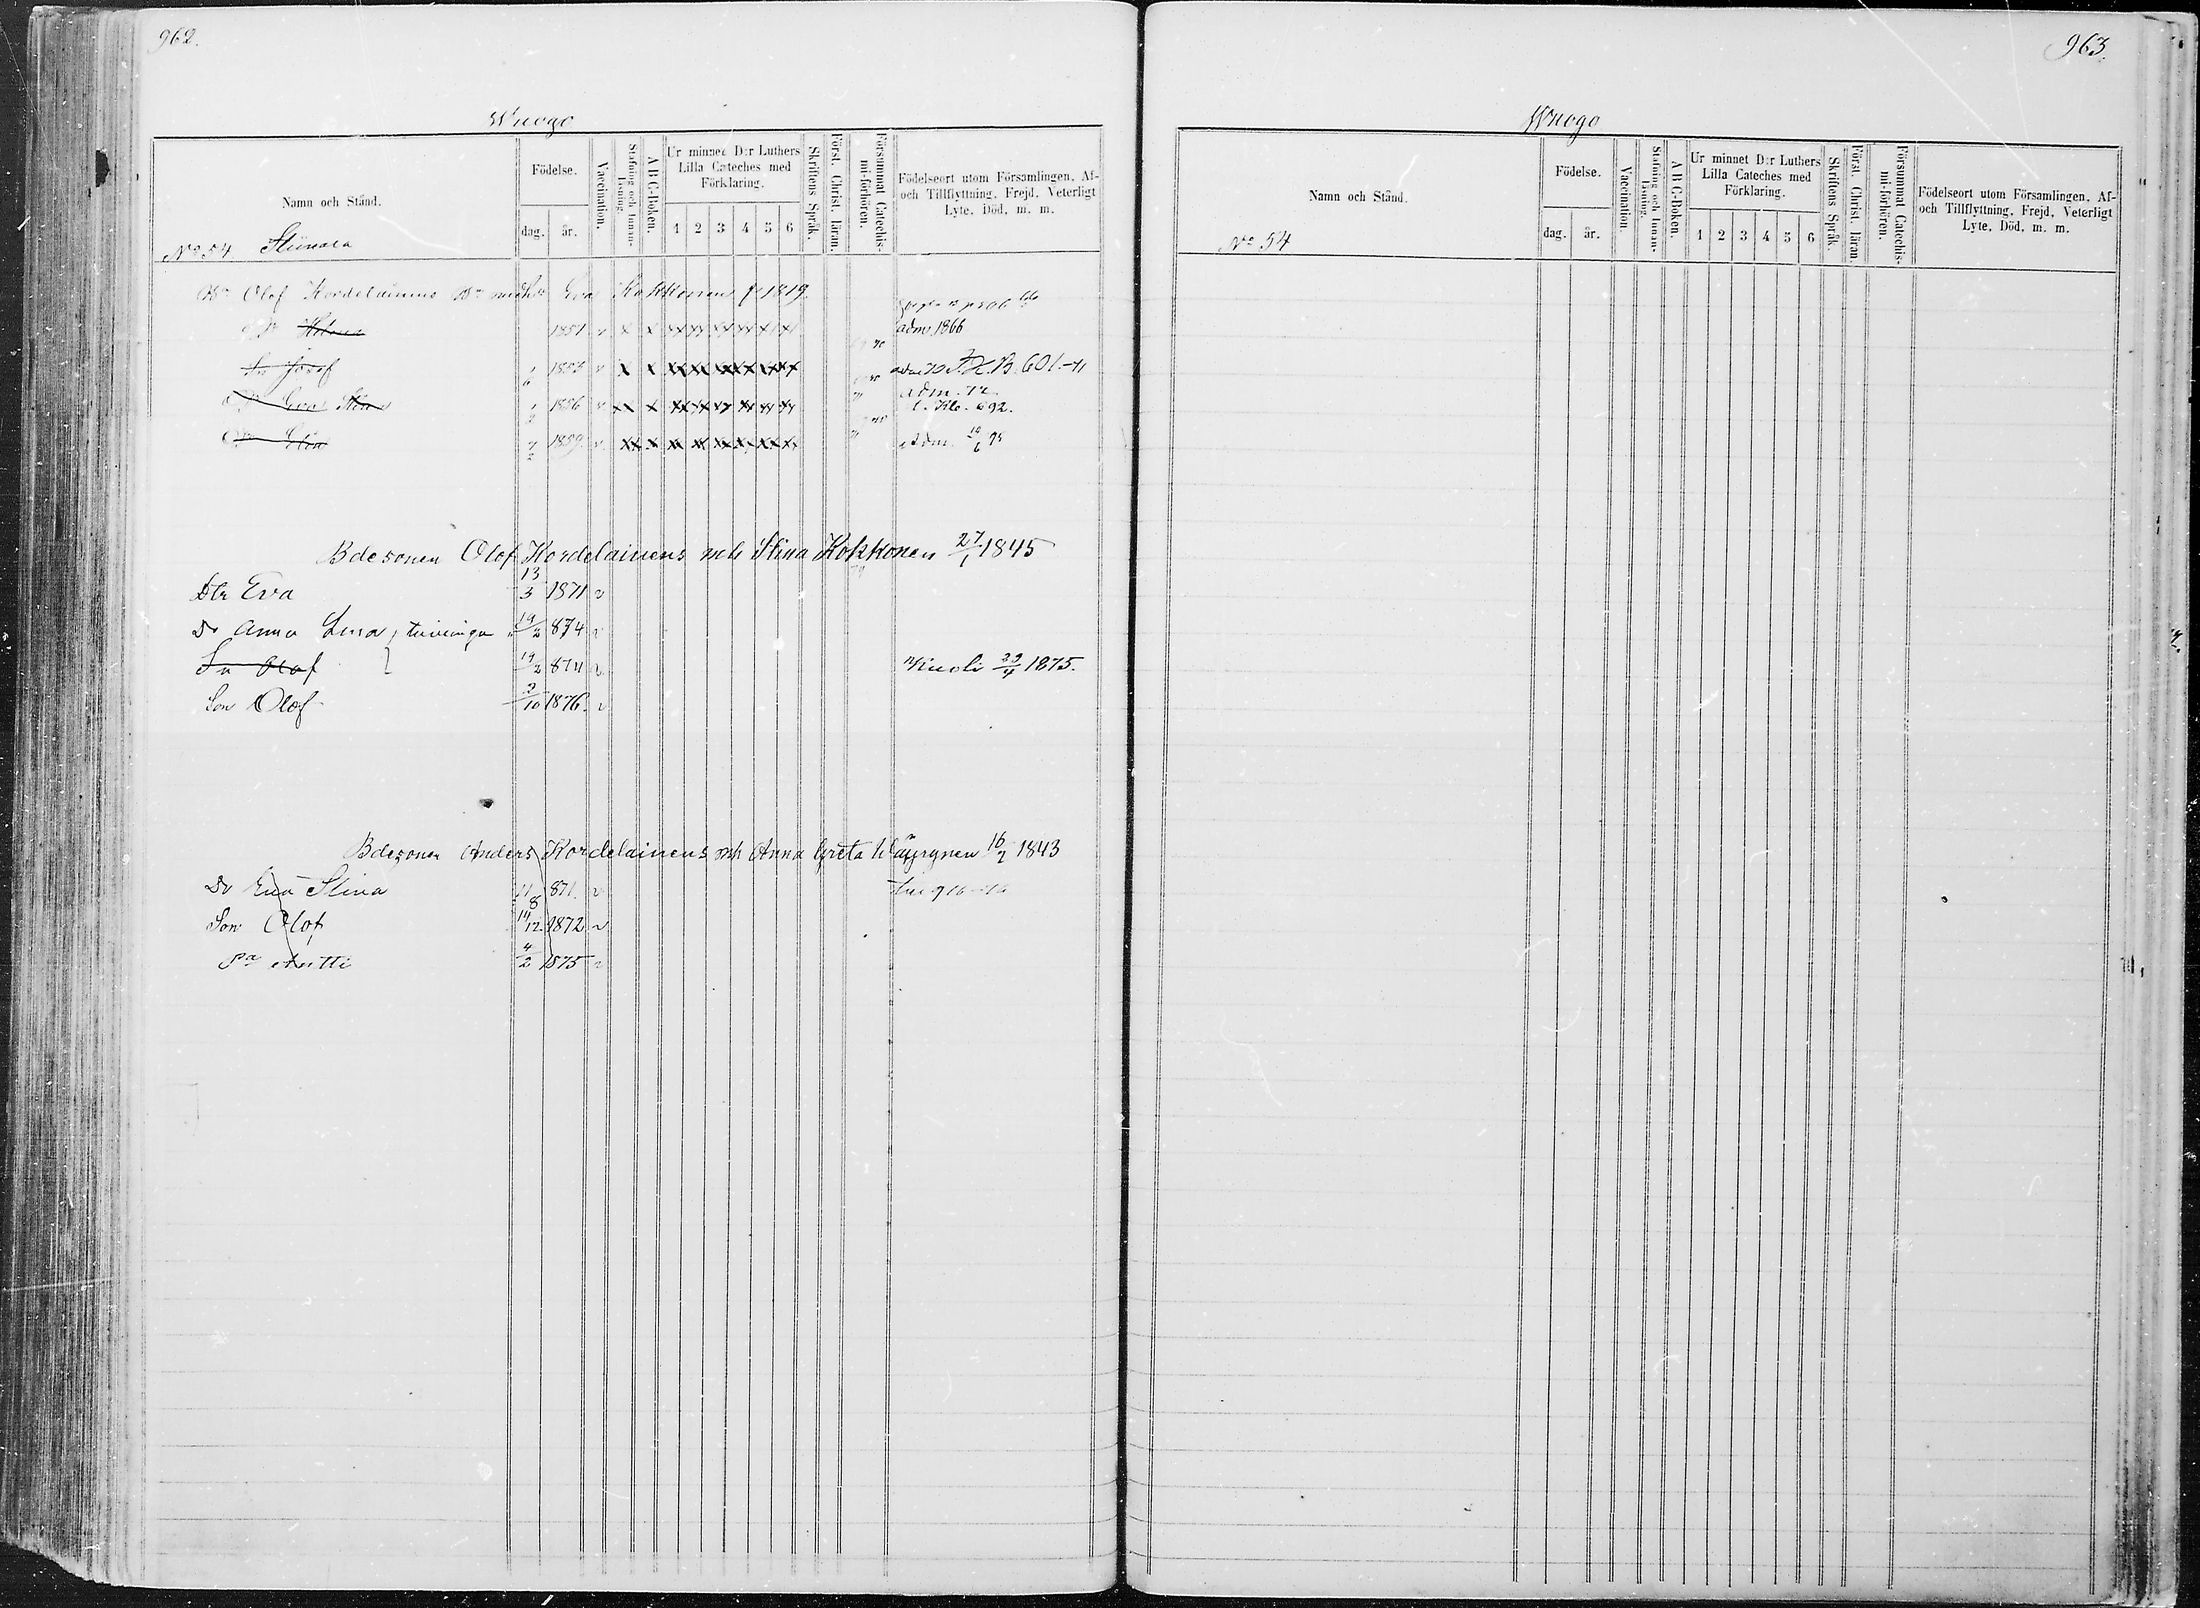 962.
Wuogo
Namn och Stånd.
Födelse.
dag.
år.
Vaccination.
Stafning och Innanläsning.
A B C-Boken.
Ur minnet D:r Luthers Lilla Cateches med Förklaring.
1 2 3 4 5 6
Skriftens Språk.
Först. Christ. läran.
Försummat Catechismi-förhören.
Födelseort utom Församlingen, Af- och Tillflyttning, Frejd, Veterligt Lyte, Död, m. m.
No 54
Olof Kordelainens Eva Kokkonen 1819.
Helena 1851 v adm 1866
Sn Josef 1/6 1853 v 601.-71
Eva Stina 1/2 1856 v adm. 72. 692.
7/2 1859 v. adm. 10/6
Bdesonen Olof Kordelainens mh Stina Kokkonen 27/1 1845
Dtr Eva 13/3 1871 v
Do Anna Lena, tvilling 19/2 874 v
Sn Olof 19/2 874 v 29/4 1875.
Son Olof 2/10 1876. v
Bdesonen Anders Kordelainens mh Anna Greta 16/2 1843
Dr Eva Stina 11/8 871. v
Son Olof 14/12 1872 v
Antti 4/2 1875 v
963.
Wuogo
Namn och Stånd.
Födelse.
dag.
år.
Vaccination.
Stafning och Innanläsning.
A B C-Boken.
Ur minnet D:r Luthers Lilla Cateches med Förklaring.
1 2 3 4 5 6
Skriftens Språk.
Först. Christ. läran.
Försummat Catechismi-förhören.
Födelseort utom Församlingen, Af- och Tillflyttning, Frejd, Veterligt Lyte, Död, m. m.
No 54